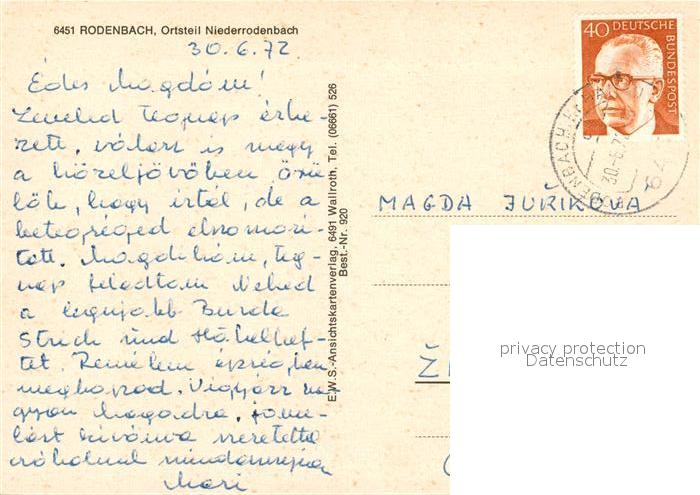 6451 RODENBACH, Ortsteil Niederrodenbach
30.6.72
Édes Magdám!
Leveled tegnap érke-
zett, válasz is megy
a közeljövőben. Örü-
lök, hogy írtál, de a
betegséged elszomorí-
tott. Magdikám, teg-
nap feladtam Neked
a legújabb Burda
Strick und Häkelhef-
tet. Remélem épségben
megkapod. Vigyázz na-
gyon magadra, javu-
lást kívánva szeretettel
csókolnak mindannyian
Mari
E.W.S.-Ansichtskartenverlag, 6491 Wallroth, Tel. (06661) 526
Best.-Nr. 920
40 DEUTSCHE BUNDESPOST
30.-6.72
MAGDA JUŘIKOVA
Ž
privacy protection
Datenschutz